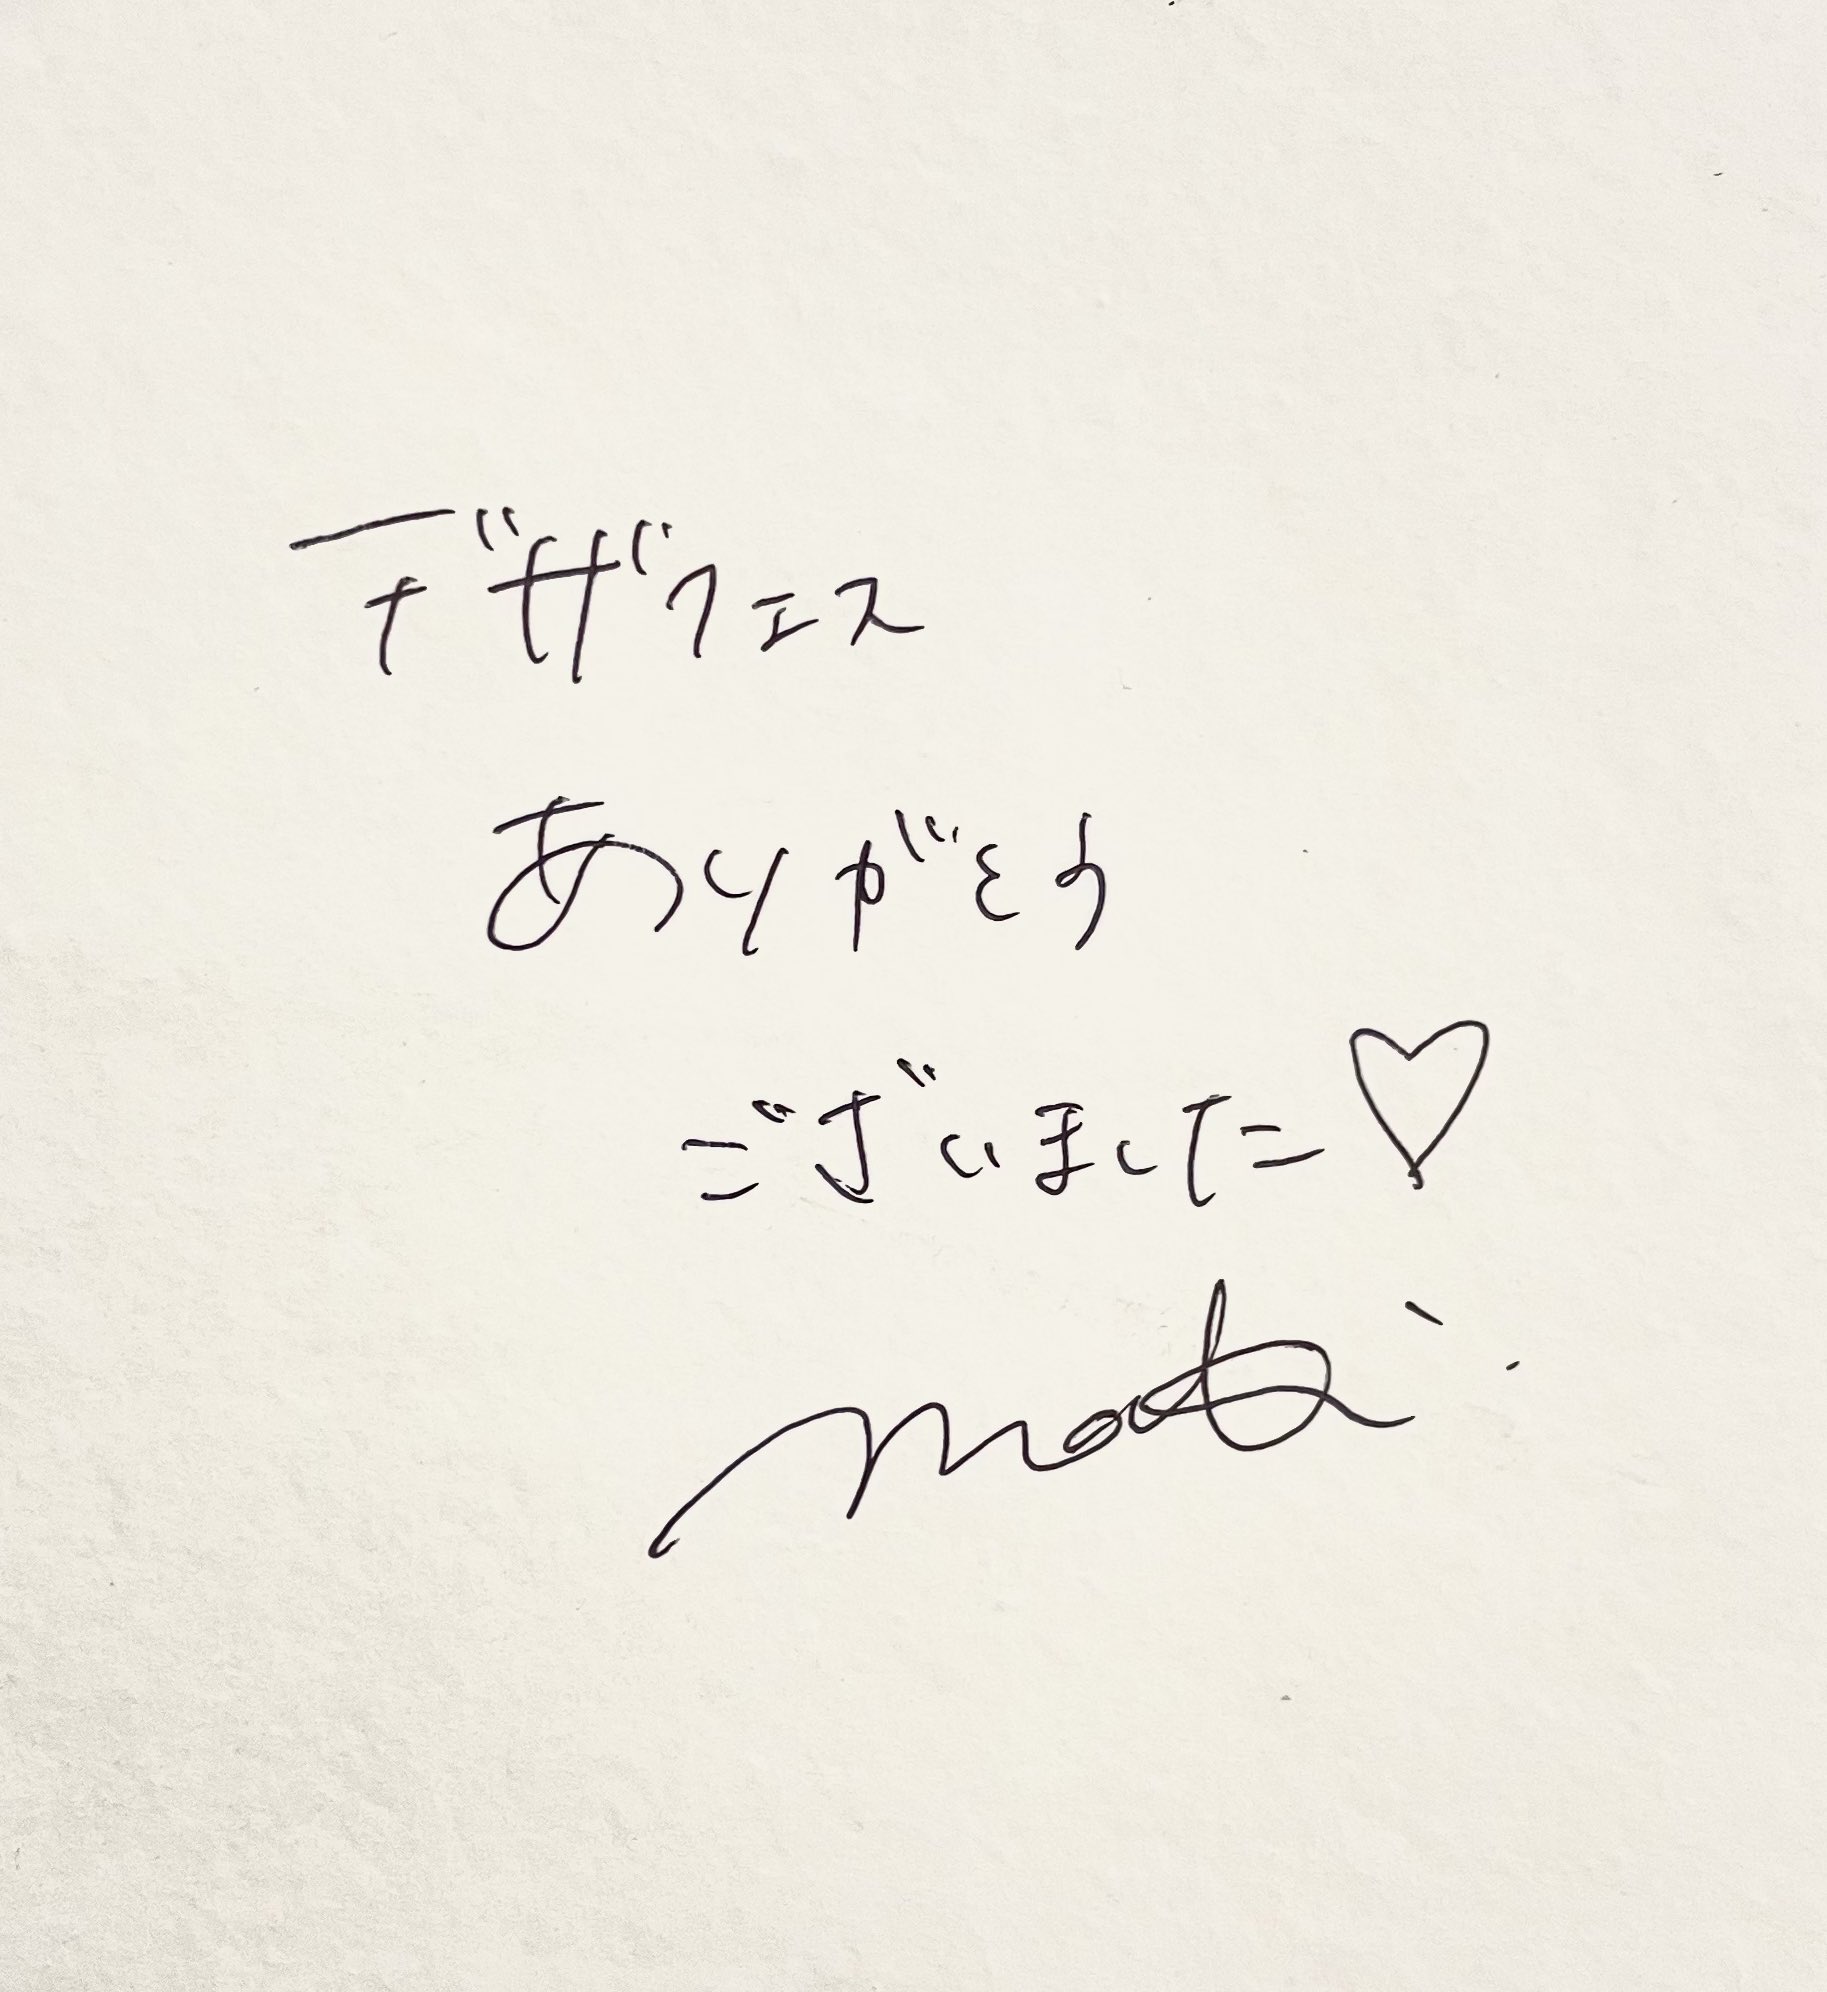 デザフェス
ありがとう
ございました♡